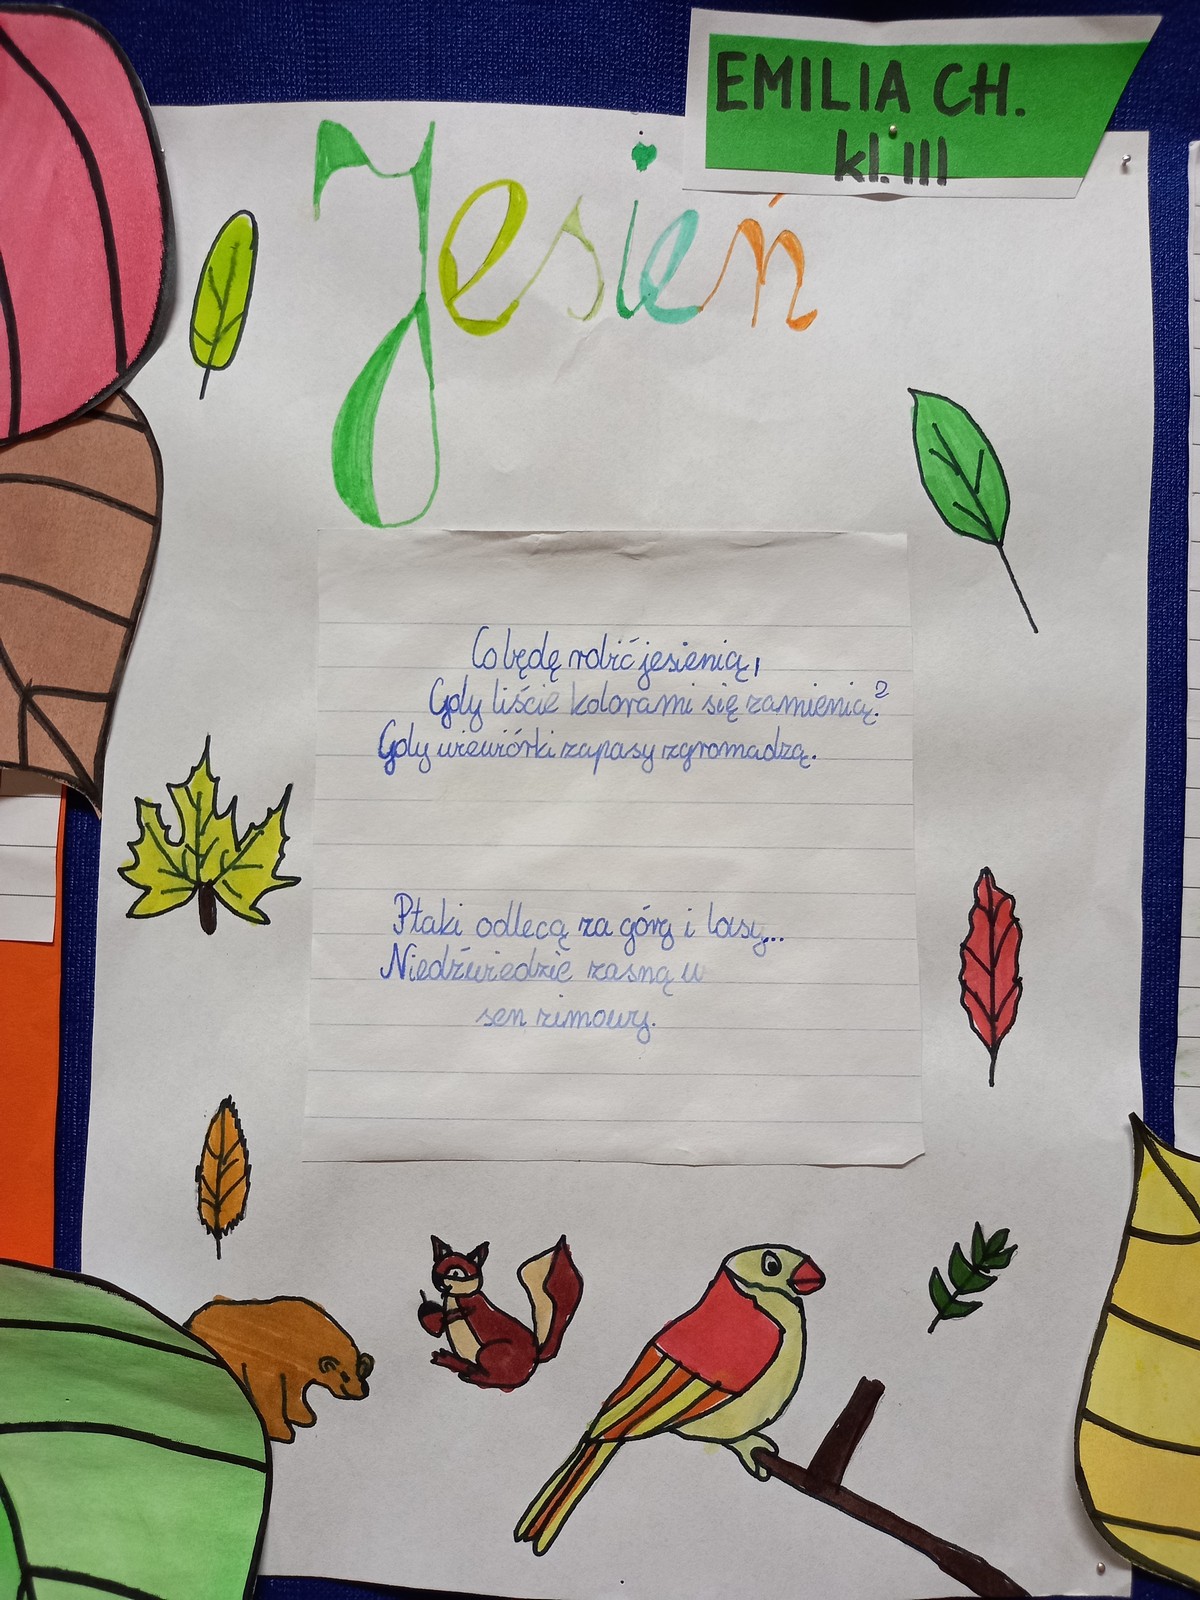 EMILIA CH.
kl. III
Jesień
Co będę robić jesienią,
Gdy liście kolorami się zamienią?
Gdy wiewiórki zapasy zgromadzą.
Ptaki odlecą za góry i lasy...
Niedźwiedzie zasną w
sen zimowy.